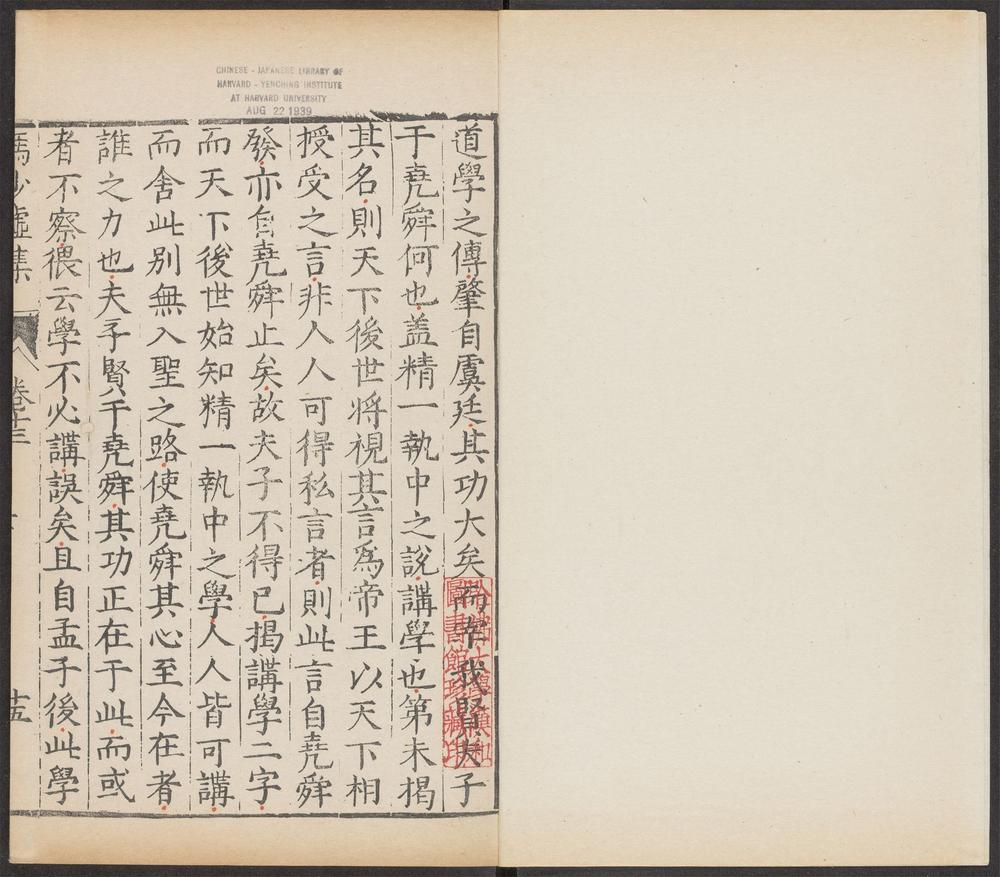 CHINESE - JAPANESE LIBRARY OF
HARVARD - YENCHING INSTITUTE
AT HARVARD UNIVERSITY
AUG 22 1939
道學之傳肇自虞廷其功大矣而宰我賢夫子
于堯舜何也盖精一執中之說講學也第未揭
其名則天下後世将視其言為帝王以天下相
授受之言非人人可得私言者則此言自堯舜
發亦自堯舜止矣故夫子不得已揭講學二字
而天下後世始知精一執中之學人人皆可講
而舍此别無入聖之路使堯舜其心至今在者
誰之力也夫子賢于堯舜其功正在于此而或
者不察猥云學不必講誤矣且自孟子後此學
馮少墟集
卷十三
十五
哈佛大學漢和
圖書館珍藏印